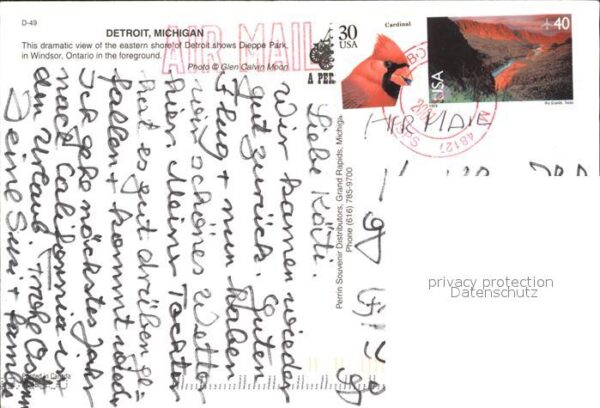 D-49
DETROIT, MICHIGAN
This dramatic view of the eastern shore of Detroit shows Dieppe Park,
in Windsor, Ontario in the foreground.
Photo © Glen Calvin Moon
AIR MAIL
30
USA
Cardinal
40
USA
Rio Grande, Texas
A PER
48127
AIR MAIL
Perrin Souvenir Distributors, Grand Rapids, Michigan
Phone (616) 785-9700
Liebe Käte.
Wir kamen wieder
gut zurück. Guten
Flug + nun haben
wir schönes Wetter
hier. Meiner Tochter
hat es gut drüben ge-
fallen + kommt wieder
Ich gehe nächstes Jahr
nach California in
den Urlaub. Frohe Ostern
Deine Susi + Familie
Printed in Canada
privacy protection
Datenschutz